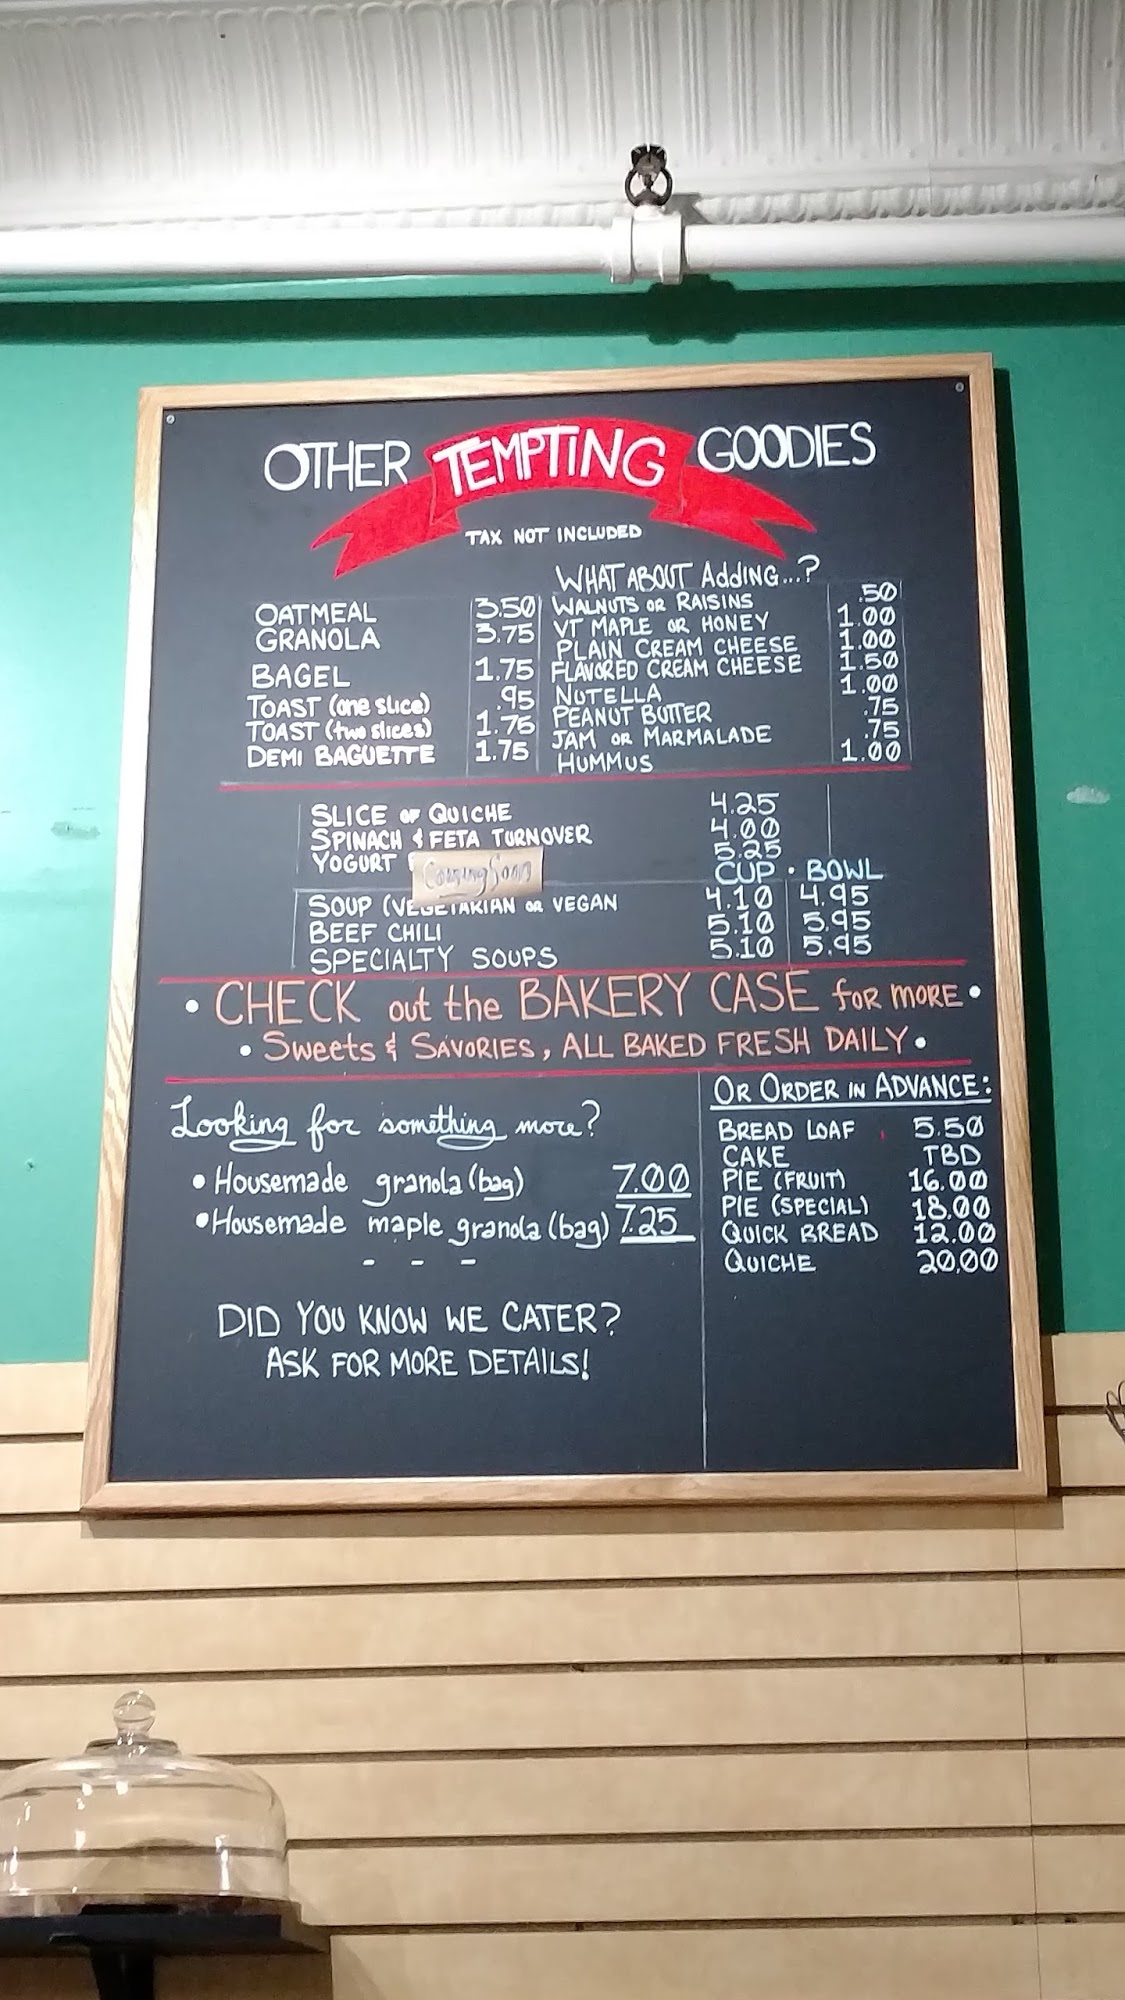 OTHER TEMPTING GOODIES
TAX NOT INCLUDED
WHAT ABOUT Adding...?
OATMEAL 3.50
GRANOLA 3.75
BAGEL 1.75
TOAST (one slice) .95
TOAST (two slices) 1.75
DEMI BAGUETTE 1.75
WALNUTS or RAISINS .50
VT MAPLE OR HONEY 1.00
PLAIN CREAM CHEESE 1.00
FLAVORED CREAM CHEESE 1.50
NUTELLA 1.00
PEANUT BUTTER .75
JAM OR MARMALADE .75
HUMMUS 1.00
SLICE OF QUICHE 4.25
SPINACH & FETA TURNOVER 4.00
YOGURT 5.25
Coming Soon
CUP • BOWL
SOUP (VEGETARIAN OR VEGAN 4.10 4.95
BEEF CHILI 5.10 5.95
SPECIALTY SOUPS 5.10 5.95
• CHECK out the BAKERY CASE for MORE •
• Sweets & SAVORIES, ALL BAKED FRESH DAILY •
Looking for something more?
• Housemade granola (bag) 7.00
• Housemade maple granola (bag) 7.25
- - -
DID YOU KNOW WE CATER?
ASK FOR MORE DETAILS!
OR ORDER IN ADVANCE:
BREAD LOAF 5.50
CAKE TBD
PIE (FRUIT) 16.00
PIE (SPECIAL) 18.00
QUICK BREAD 12.00
QUICHE 20.00